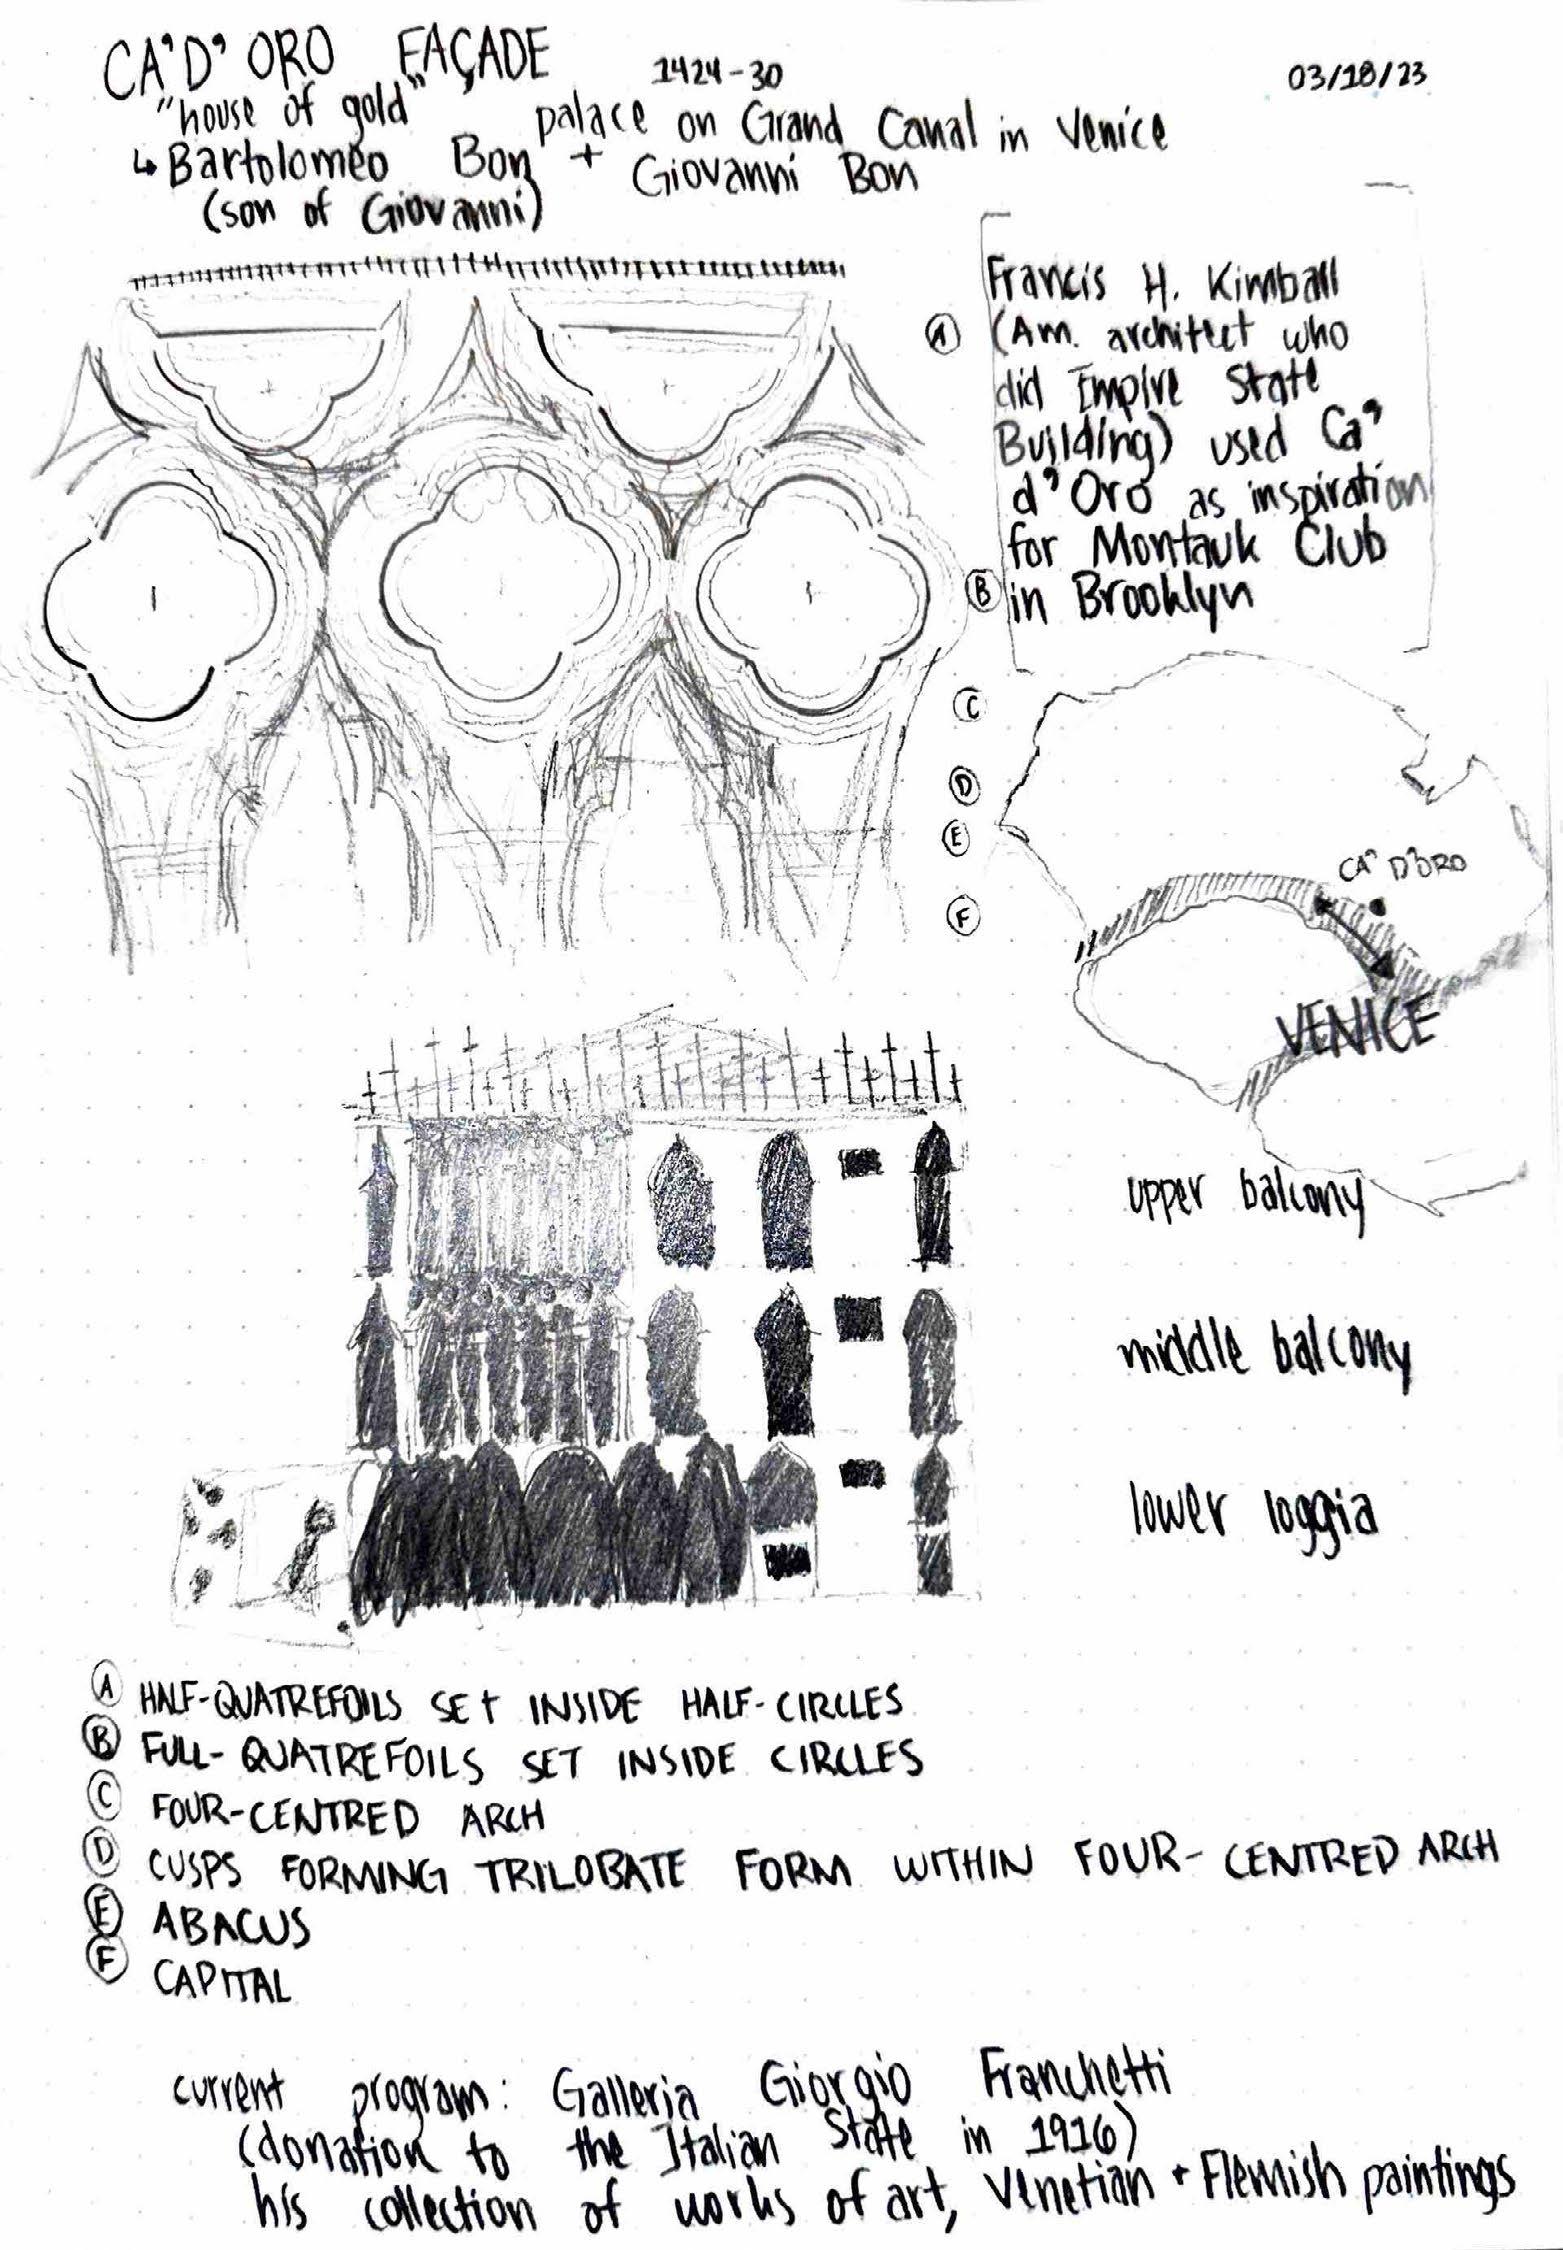 CA'D' ORO FAÇADE
1424-30
03/18/23
"house of gold"
palace on Grand Canal in Venice
↳ Bartolomeo Bon + Giovanni Bon
(son of Giovanni)
Francis H. Kimball
(A) (Am. architect who
did Empire State
Building) used Ca'
d'Oro as inspiration
for Montauk Club
(B) in Brooklyn
(C)
(D)
(E)
(F)
CA' D'ORO
VENICE
upper balcony
middle balcony
lower loggia
(A) HALF-QUATREFOILS SET INSIDE HALF-CIRCLES
(B) FULL-QUATREFOILS SET INSIDE CIRCLES
(C) FOUR-CENTRED ARCH
(D) CUSPS FORMING TRILOBATE FORM WITHIN FOUR-CENTRED ARCH
(E) ABACUS
(F) CAPITAL
current program: Galleria Giorgio Franchetti
(donation to the Italian State in 1916)
his collection of works of art, Venetian + Flemish paintings